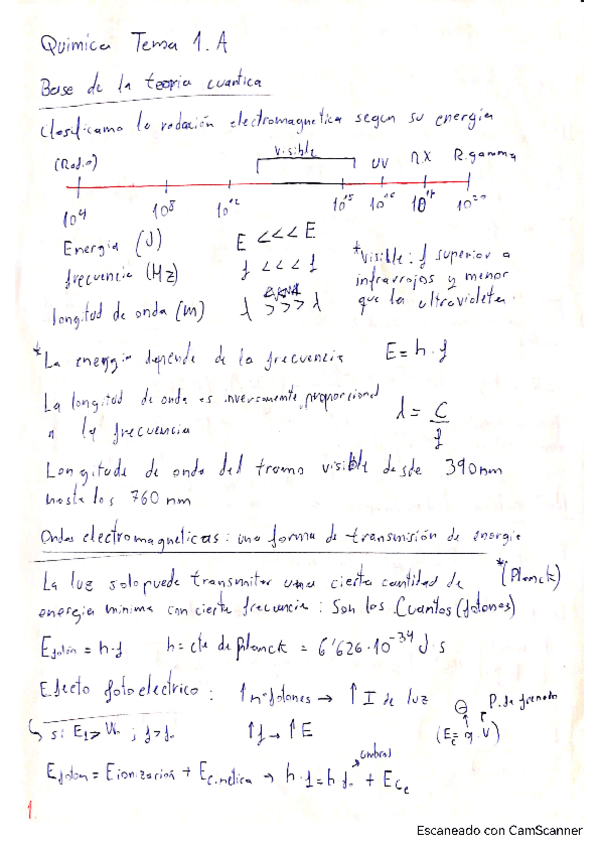 Química Tema 1.A
Base de la teoria cuantica
Clasificamo la radación electromagnetica segun su energía
(Radio) visible UV R.X R. gamma
10⁴ 10⁸ 10¹² 10¹⁵ 10¹⁶ 10¹⁸ 10²⁰
Energia (J) E <<< E
frecuencia (Hz) f <<< f
longitud de onda (m) λ >>> λ
*Visible: f superior a
infrarrojos y menor
que la ultravioleta.
*La energia depende de la frecuencia E = h · f
La longitud de onda es inversamente proporcional
a la frecuencia
λ = C/f
Longitude de onda del tramo visible desde 390 nm
hasta los 760 nm
Ondas electromagneticas: una forma de transmisión de energia
La luz solo puede transmitir una cierta cantidad de *(Planck)
energia minima con cierta frecuencia: Son los Cuantos (fotones)
Efotón = h · f h = cte de planck = 6'626 · 10⁻³⁴ J · s
Efecto fotoelectrico: ↑ nº fotones → ↑ I de luz
P. de frenado
↳ si Ef > W₀ ; f > f₀ ↑f → ↑E (Ec = q · V)
umbral
Efoton = Eionización + Ecinética → h · f = h f₀ + Ece
1.
Escaneado con CamScanner